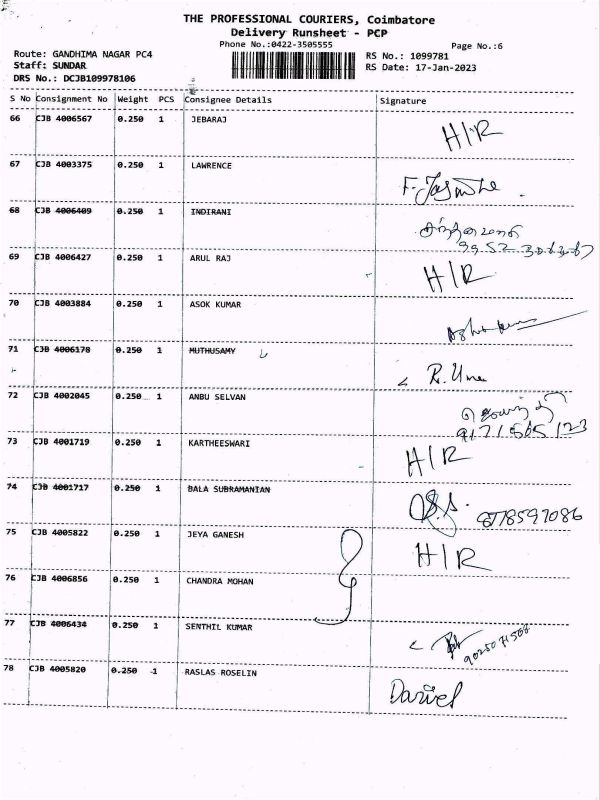 THE PROFESSIONAL COURIERS, Coimbatore
Delivery Runsheet - PCP
Phone No.:0422-3505555
Page No.:6
Route: GANDHIMA NAGAR PC4
RS No.: 1099781
Staff: SUNDAR
RS Date: 17-Jan-2023
DRS No.: DCJB109978106
S No Consignment No Weight PCS Consignee Details Signature
66 CJB 4006567 0.250 1 JEBARAJ H/R
67 CJB 4003375 0.250 1 LAWRENCE
68 CJB 4006409 0.250 1 INDIRANI
69 CJB 4006427 0.250 1 ARUL RAJ H/R
70 CJB 4003884 0.250 1 ASOK KUMAR
71 CJB 4006178 0.250 1 MUTHUSAMY R. Uma
72 CJB 4002045 0.250 1 ANBU SELVAN
73 CJB 4001719 0.250 1 KARTHEESWARI H/R
74 CJB 4001717 0.250 1 BALA SUBRAMANIAN
75 CJB 4005822 0.250 1 JEYA GANESH H/R
76 CJB 4006856 0.250 1 CHANDRA MOHAN
77 CJB 4006434 0.250 1 SENTHIL KUMAR
78 CJB 4005820 0.250 1 RASLAS ROSELIN Daniel